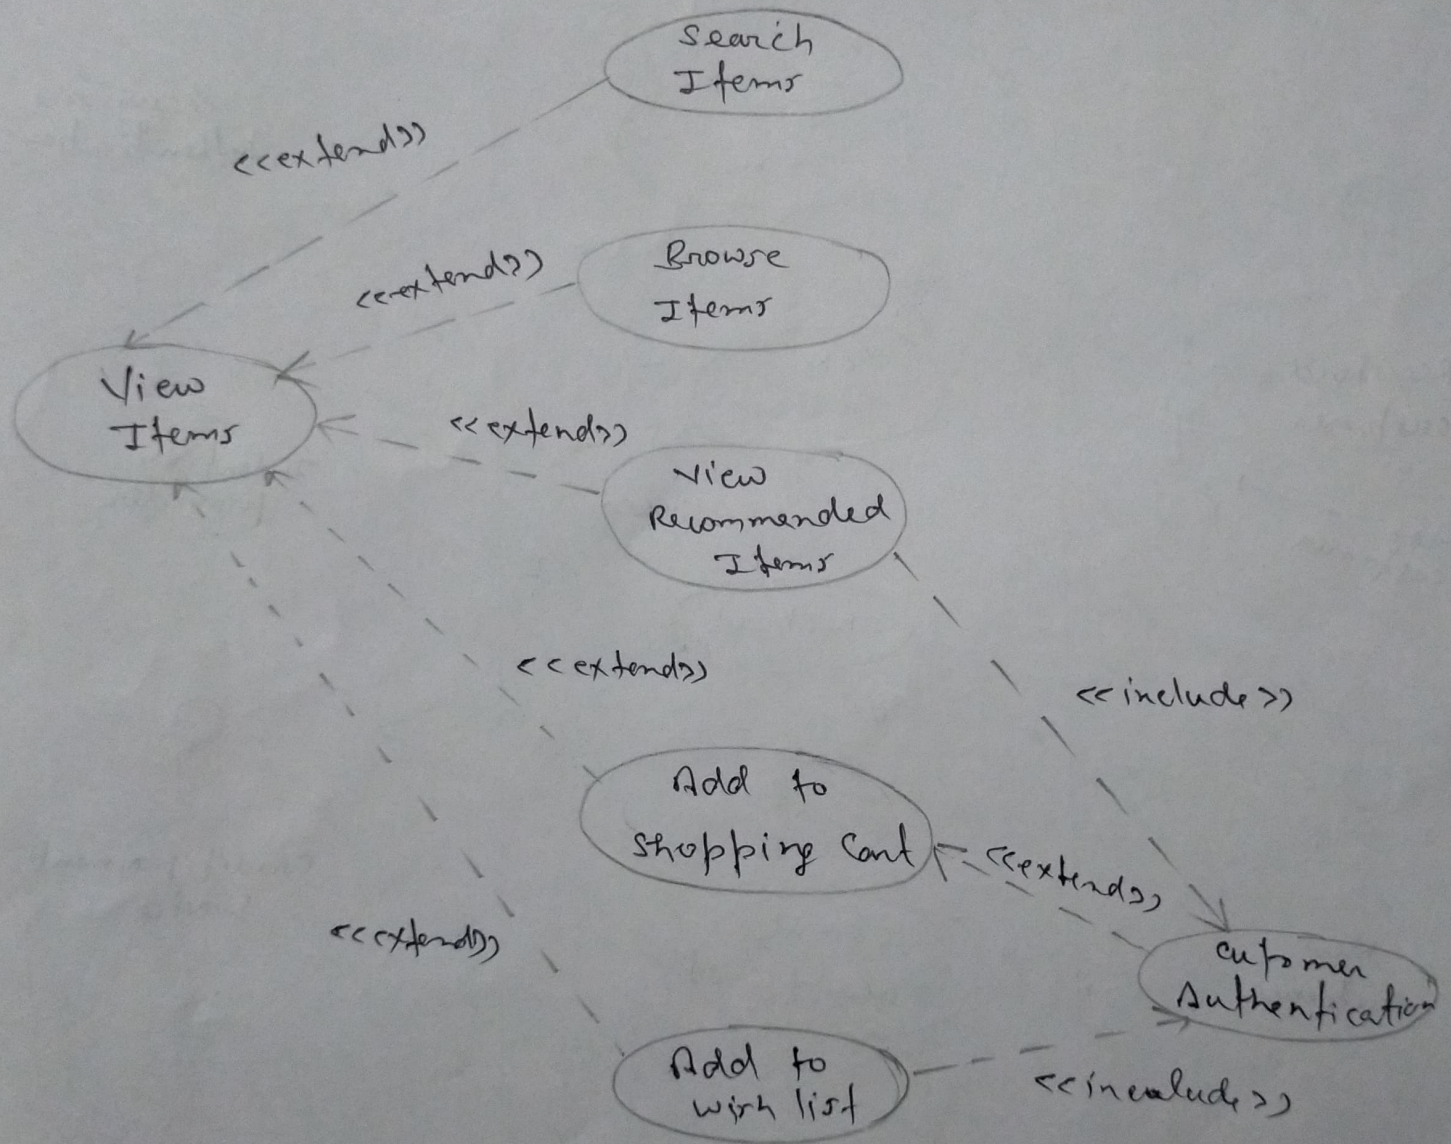 Search
Items
<<extend>>
Browse
Items
<<extend>>
View
Items
<<extend>>
View
Recommended
Items
<<extend>>
<<include>>
Add to
Shopping Cart
<<extend>>
<<extend>>
Cutomer
Authentication
Add to
wish list
<<inculude>>